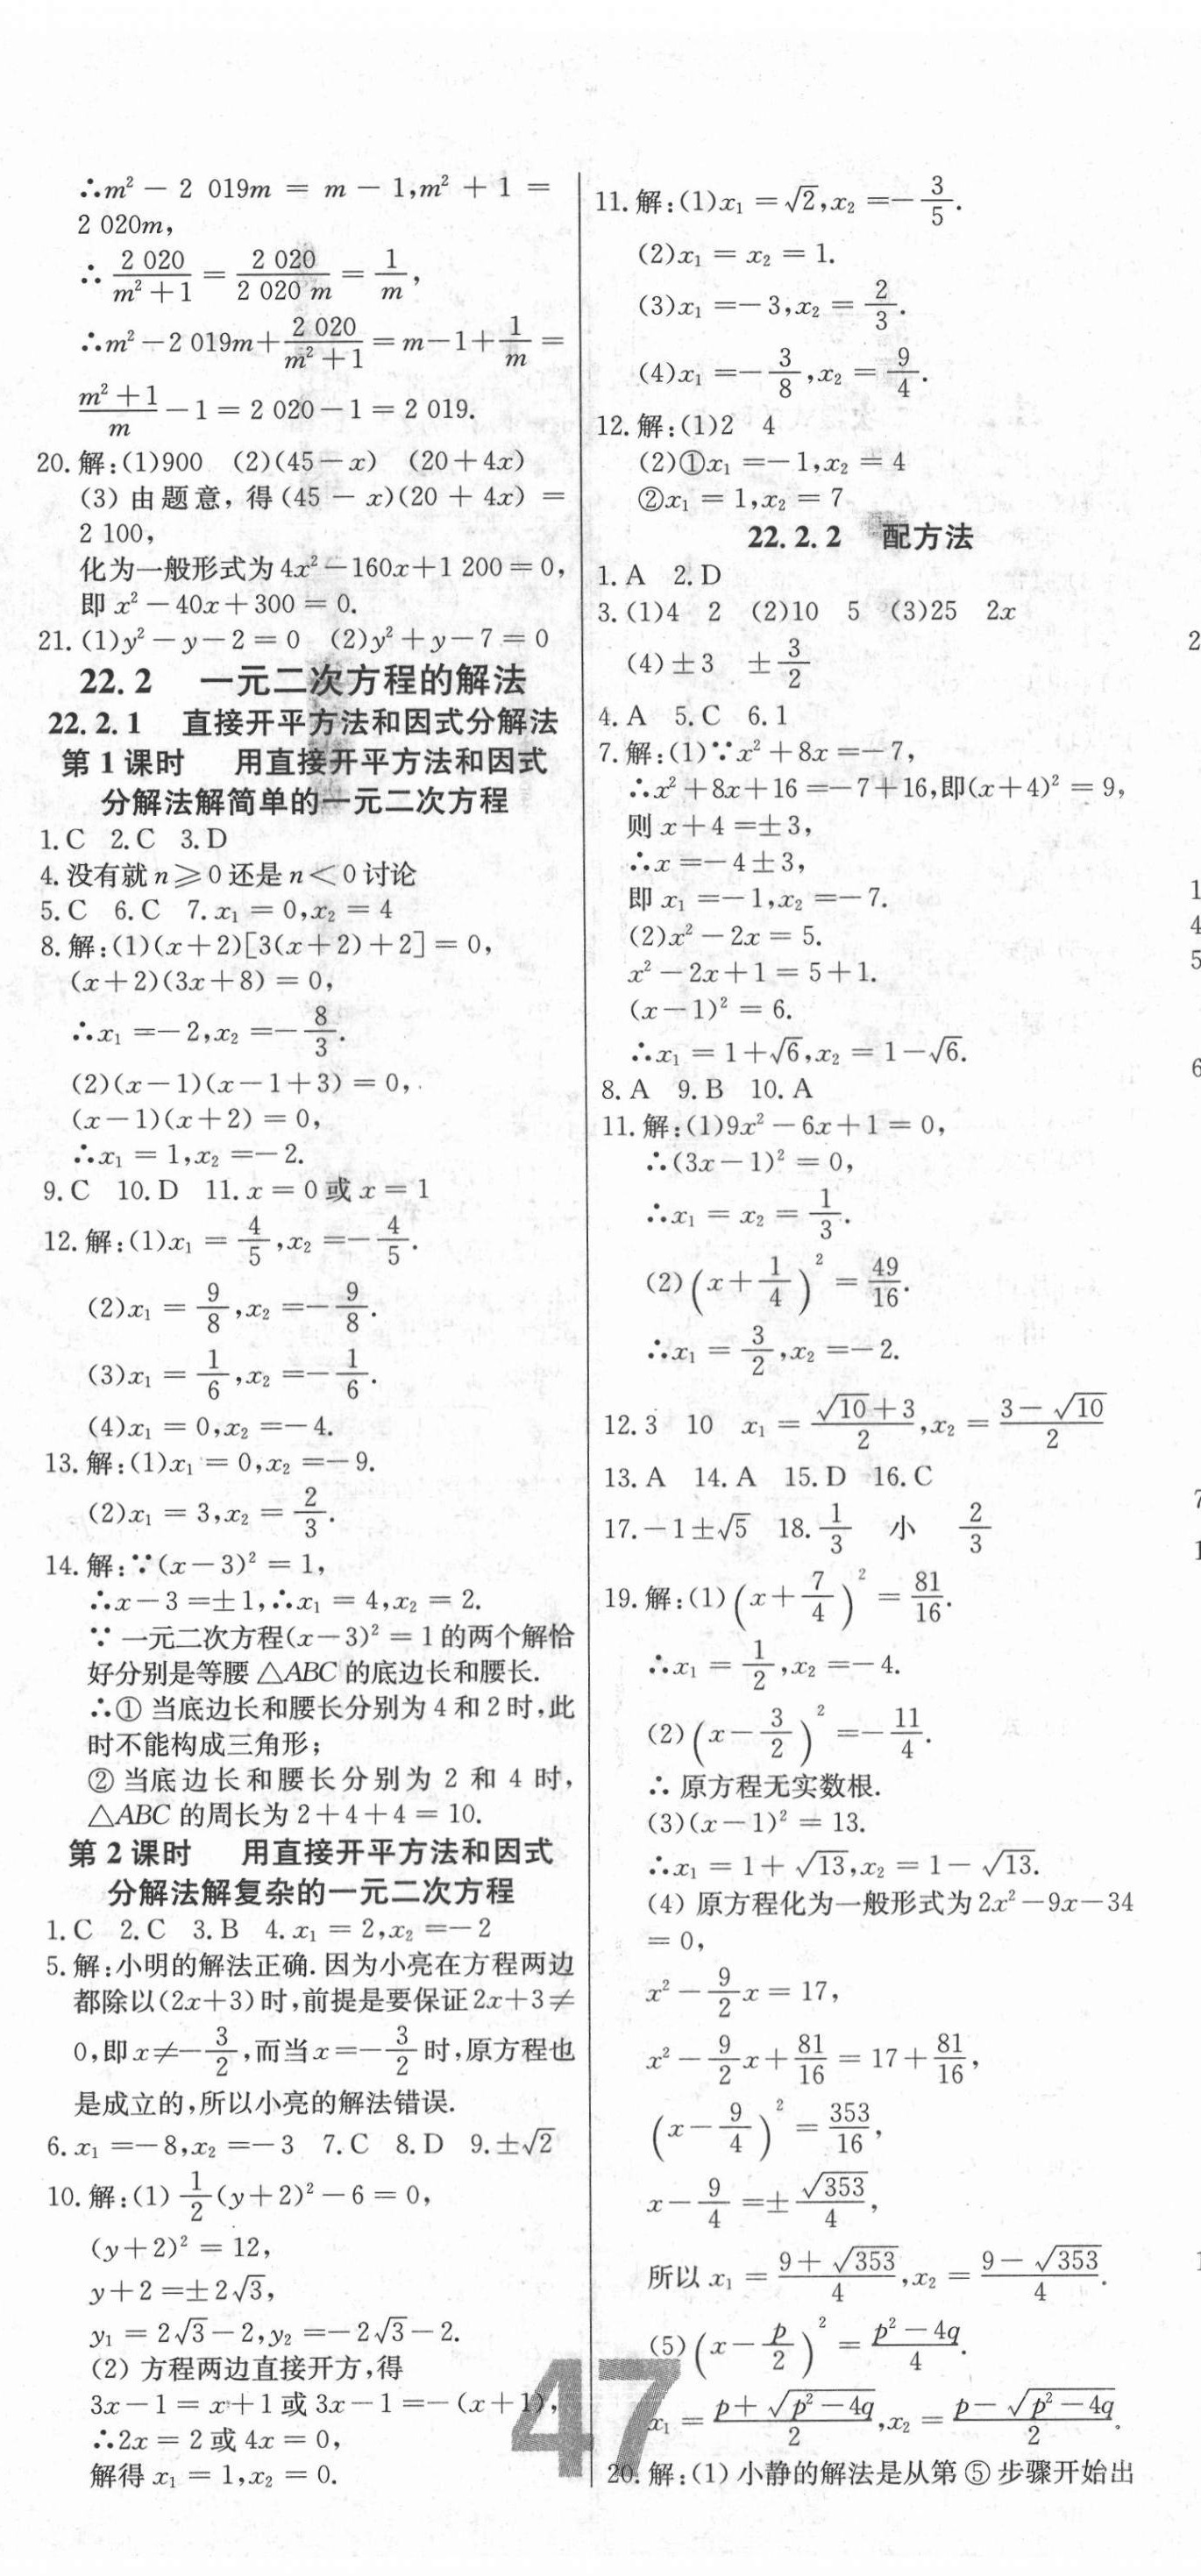 ∴m² − 2 019m = m − 1,m² + 1 =
2 020m,
∴ 2 020/(m²+1) = 2 020/(2 020 m) = 1/m,
∴m²−2 019m+2 020/(m²+1)=m−1+1/m=
(m²+1)/m−1=2 020−1=2 019.
20. 解:(1)900 (2)(45−x) (20+4x)
(3) 由题意, 得(45 − x)(20 + 4x) =
2 100,
化为一般形式为4x²−160x+1 200=0,
即 x²−40x+300=0.
21. (1)y²−y−2=0 (2)y²+y−7=0
22.2 一元二次方程的解法
22.2.1 直接开平方法和因式分解法
第1课时 用直接开平方法和因式
分解法解简单的一元二次方程
1. C 2. C 3. D
4. 没有就n⩾0还是n<0讨论
5. C 6. C 7. x₁=0,x₂=4
8. 解:(1)(x+2)[3(x+2)+2]=0,
(x+2)(3x+8)=0,
∴x₁=−2,x₂=−8/3.
(2)(x−1)(x−1+3)=0,
(x−1)(x+2)=0,
∴x₁=1,x₂=−2.
9. C 10. D 11. x=0或x=1
12. 解:(1)x₁=4/5,x₂=−4/5.
(2)x₁=9/8,x₂=−9/8.
(3)x₁=1/6,x₂=−1/6.
(4)x₁=0,x₂=−4.
13. 解:(1)x₁=0,x₂=−9.
(2)x₁=3,x₂=2/3.
14. 解:∵(x−3)²=1,
∴x−3=±1,∴x₁=4,x₂=2.
∵ 一元二次方程(x−3)²=1的两个解恰
好分别是等腰△ABC的底边长和腰长.
∴① 当底边长和腰长分别为4和2时,此
时不能构成三角形;
② 当底边长和腰长分别为 2 和 4 时,
△ABC的周长为2+4+4=10.
第2课时 用直接开平方法和因式
分解法解复杂的一元二次方程
1. C 2. C 3. B 4. x₁=2,x₂=−2
5. 解:小明的解法正确. 因为小亮在方程两边
都除以(2x+3)时,前提是要保证2x+3≠
0,即x≠−3/2,而当x=−3/2时,原方程也
是成立的,所以小亮的解法错误.
6. x₁=−8,x₂=−3 7. C 8. D 9. ±√2
10. 解:(1)1/2(y+2)²−6=0,
(y+2)²=12,
y+2=±2√3,
y₁=2√3−2,y₂=−2√3−2.
(2) 方程两边直接开方,得
3x−1=x+1或3x−1=−(x+1),
∴2x=2或4x=0,
解得x₁=1,x₂=0.
11. 解:(1)x₁=√2,x₂=−3/5.
(2)x₁=x₂=1.
(3)x₁=−3,x₂=2/3.
(4)x₁=−3/8,x₂=9/4.
12. 解:(1)2 4
(2)①x₁=−1,x₂=4
②x₁=1,x₂=7
22.2.2 配方法
1. A 2. D
3. (1)4 2 (2)10 5 (3)25 2x
(4)±3 ±3/2
4. A 5. C 6. 1
7. 解:(1)∵x²+8x=−7,
∴x²+8x+16=−7+16,即(x+4)²=9,
则x+4=±3,
∴x=−4±3,
即x₁=−1,x₂=−7.
(2)x²−2x=5.
x²−2x+1=5+1.
(x−1)²=6.
∴x₁=1+√6,x₂=1−√6.
8. A 9. B 10. A
11. 解:(1)9x²−6x+1=0,
∴(3x−1)²=0,
∴x₁=x₂=1/3.
(2)(x+1/4)²=49/16.
∴x₁=3/2,x₂=−2.
12. 3 10 x₁=(√10+3)/2,x₂=(3−√10)/2
13. A 14. A 15. D 16. C
17. −1±√5 18. 1/3 小 2/3
19. 解:(1)(x+7/4)²=81/16.
∴x₁=1/2,x₂=−4.
(2)(x−3/2)²=−11/4.
∴ 原方程无实数根.
(3)(x−1)²=13.
∴x₁=1+√13,x₂=1−√13.
(4) 原方程化为一般形式为2x²−9x−34
=0,
x²−9/2x=17,
x²−9/2x+81/16=17+81/16,
(x−9/4)²=353/16,
x−9/4=±√353/4,
所以x₁=(9+√353)/4,x₂=(9−√353)/4.
(5)(x−p/2)²=(p²−4q)/4.
x₁=(p+√(p²−4q))/2,x₂=(p−√(p²−4q))/2.
20. 解:(1) 小静的解法是从第⑤步骤开始出
47
2
1
4
5
6
7
1
1